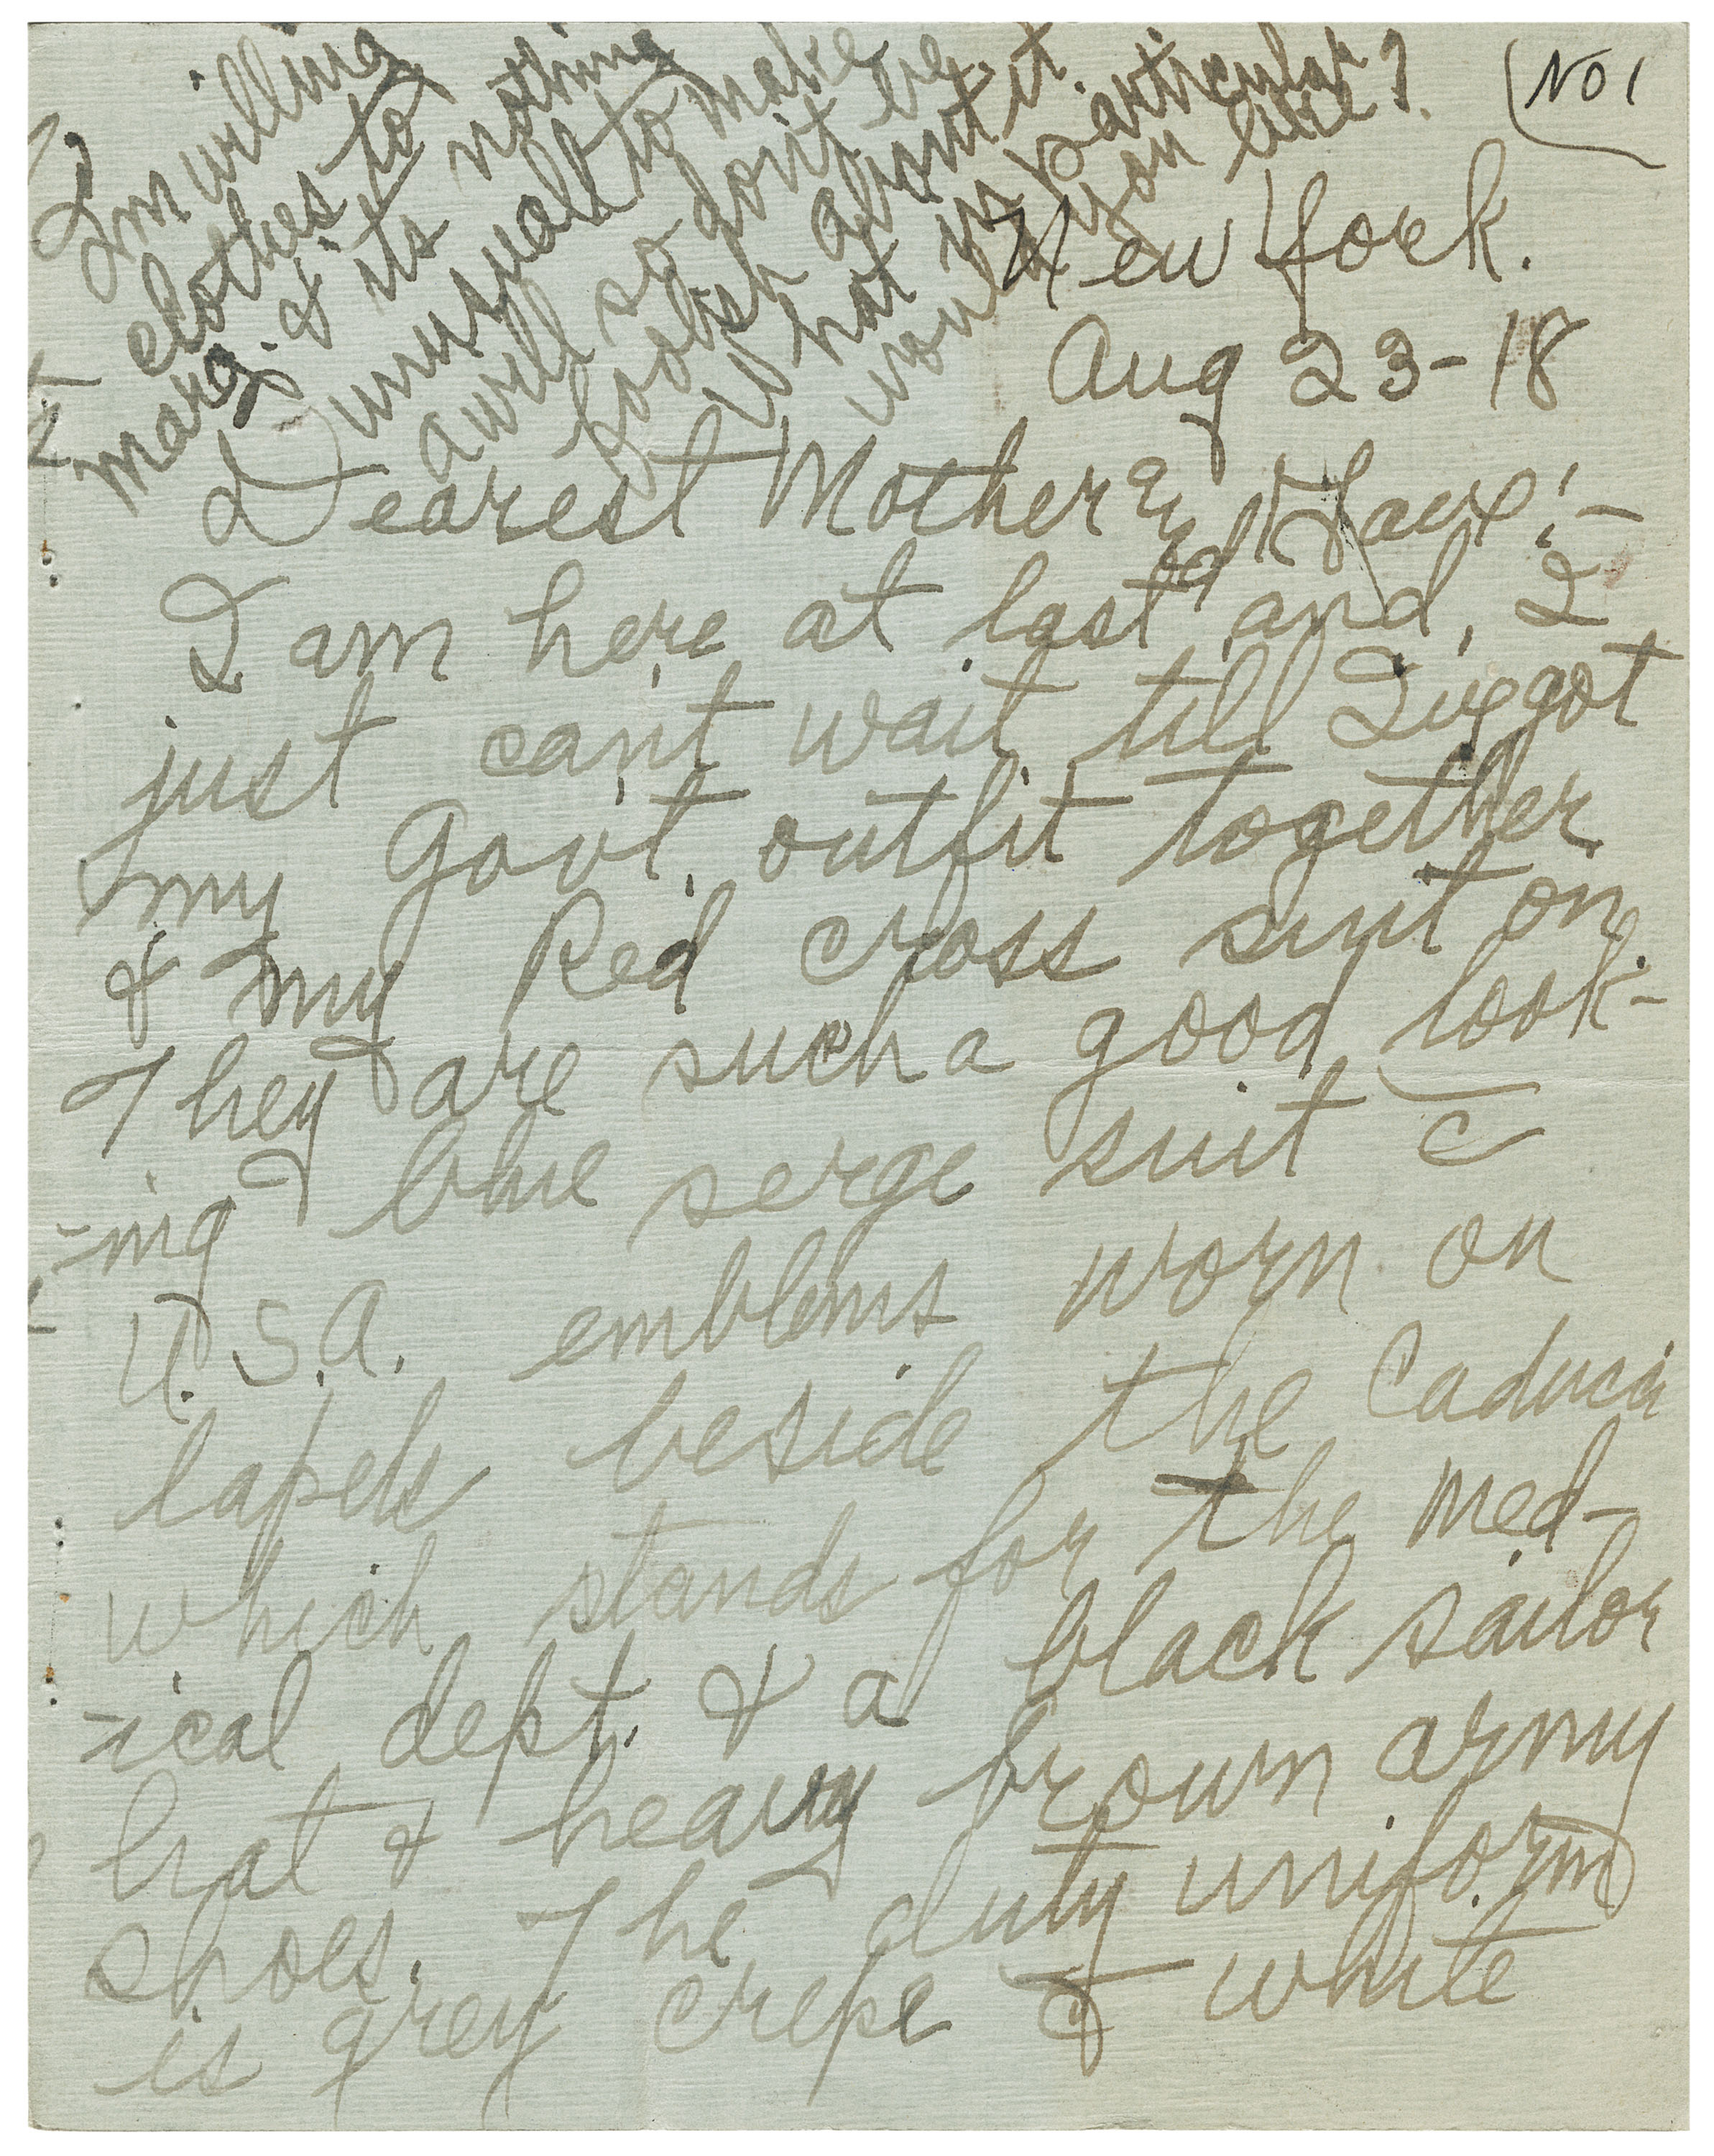 (No 1
I'm willing
clothes to
Marg. & it's nothing
unusual to make
a will so don't be
foolish about it.
If not in particular
would you like?
New York.
Aug 23-18
Dearest Mother And
I am here at last and, I
just can't wait till I've got
my Gov't. outfit together
& my Red Cross suit on.
They are such a good look-
-ing blue serge suit c̄
U.S.A. emblems worn on
lapels beside the Caducii
which stands for the Med-
-ical dept. & a black sailor
hat & heavy brown army
shoes. The duty uniform
is grey crepe & white